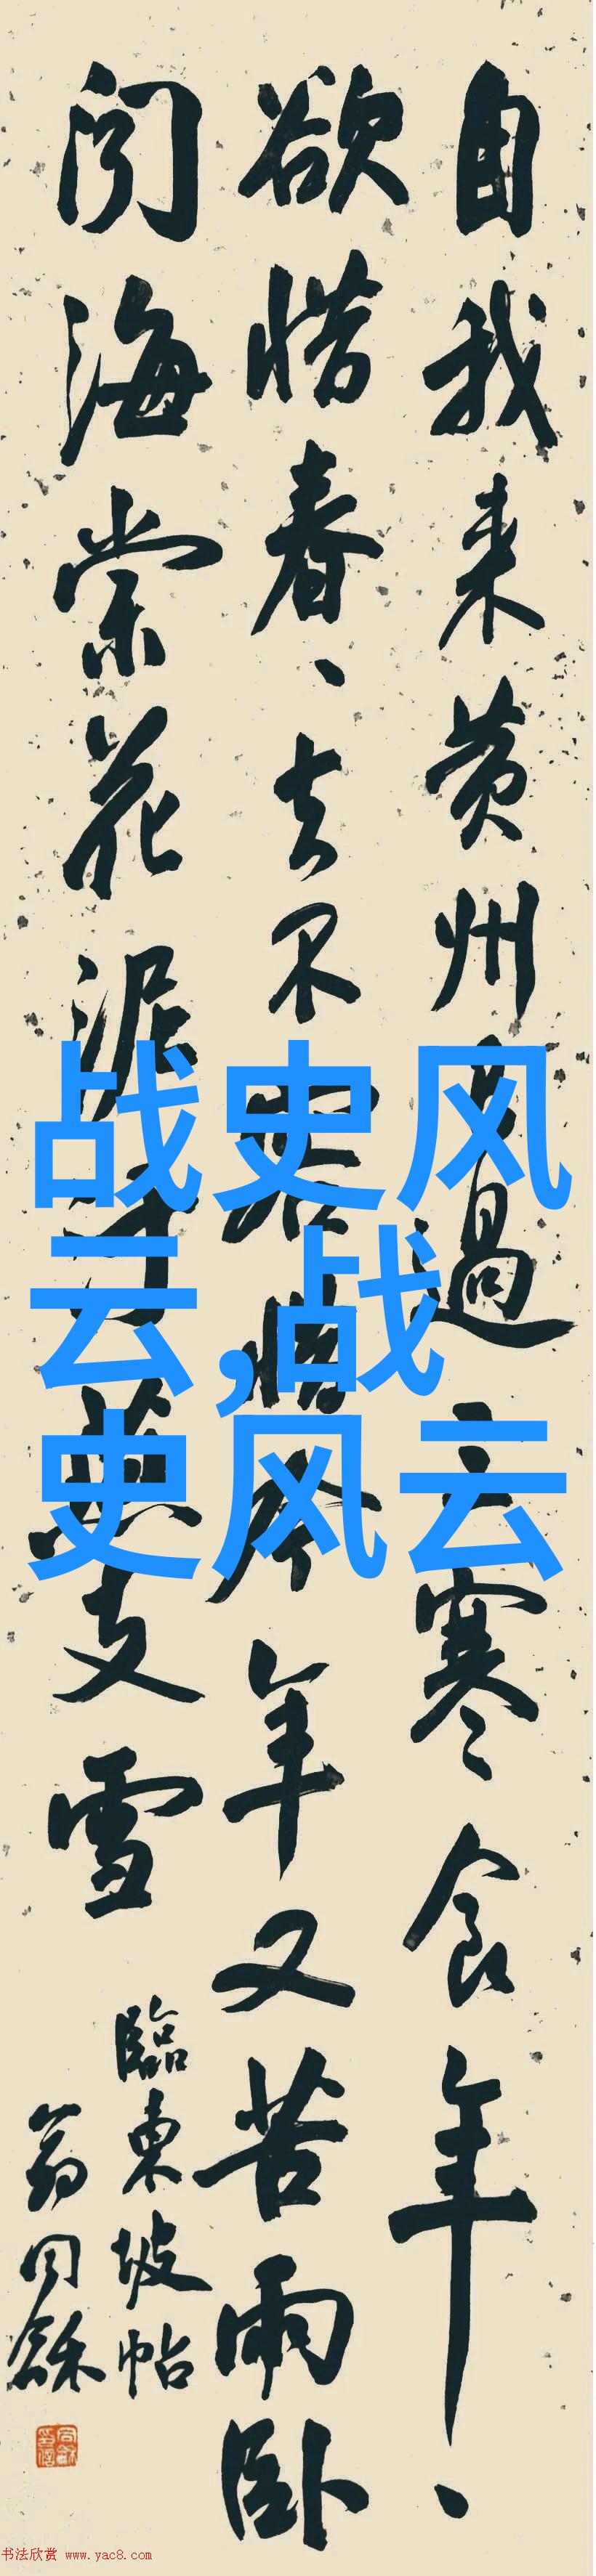 自我来黄州已過三寒食年、
欲惜春、去不容惜今年又苦雨卧
闻海棠花泥汙燕支雪
臨東坡帖
翁同龢
战史风
云,战
史风云
书法欣赏 www.yac8.com